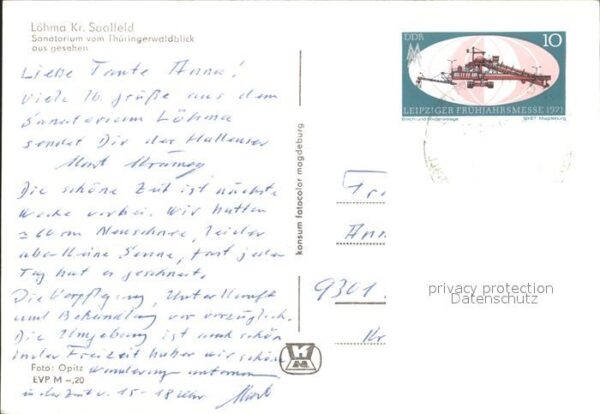 Löhma Kr. Saalfeld
Sanatorium vom Thüringerwaldblick
aus gesehen
Liebe Tante Anna!
Viele Grüße aus dem
Sanatorium Löhma
sendet Dir der Hallenser
Die schöne Zeit ist nächste
Woche vorbei. Wir hatten
60 cm Neuschnee, leider
aber keine Sonne, fast jeden
Tag hat es geschneit.
Die Verpflegung, Unterkunft
und Behandlung war vorzüglich.
Die Umgebung ist auch schön
in der Freizeit haben wir schöne
Wanderungen unternommen
in der Zeit v. 15-18 Uhr
Foto: Opitz
EVP M -,20
konsum fotocolor magdeburg
DDR
10
LEIPZIGER FRÜHJAHRSMESSE 1971
Fr
Ann
9301
Kr
privacy protection
Datenschutz